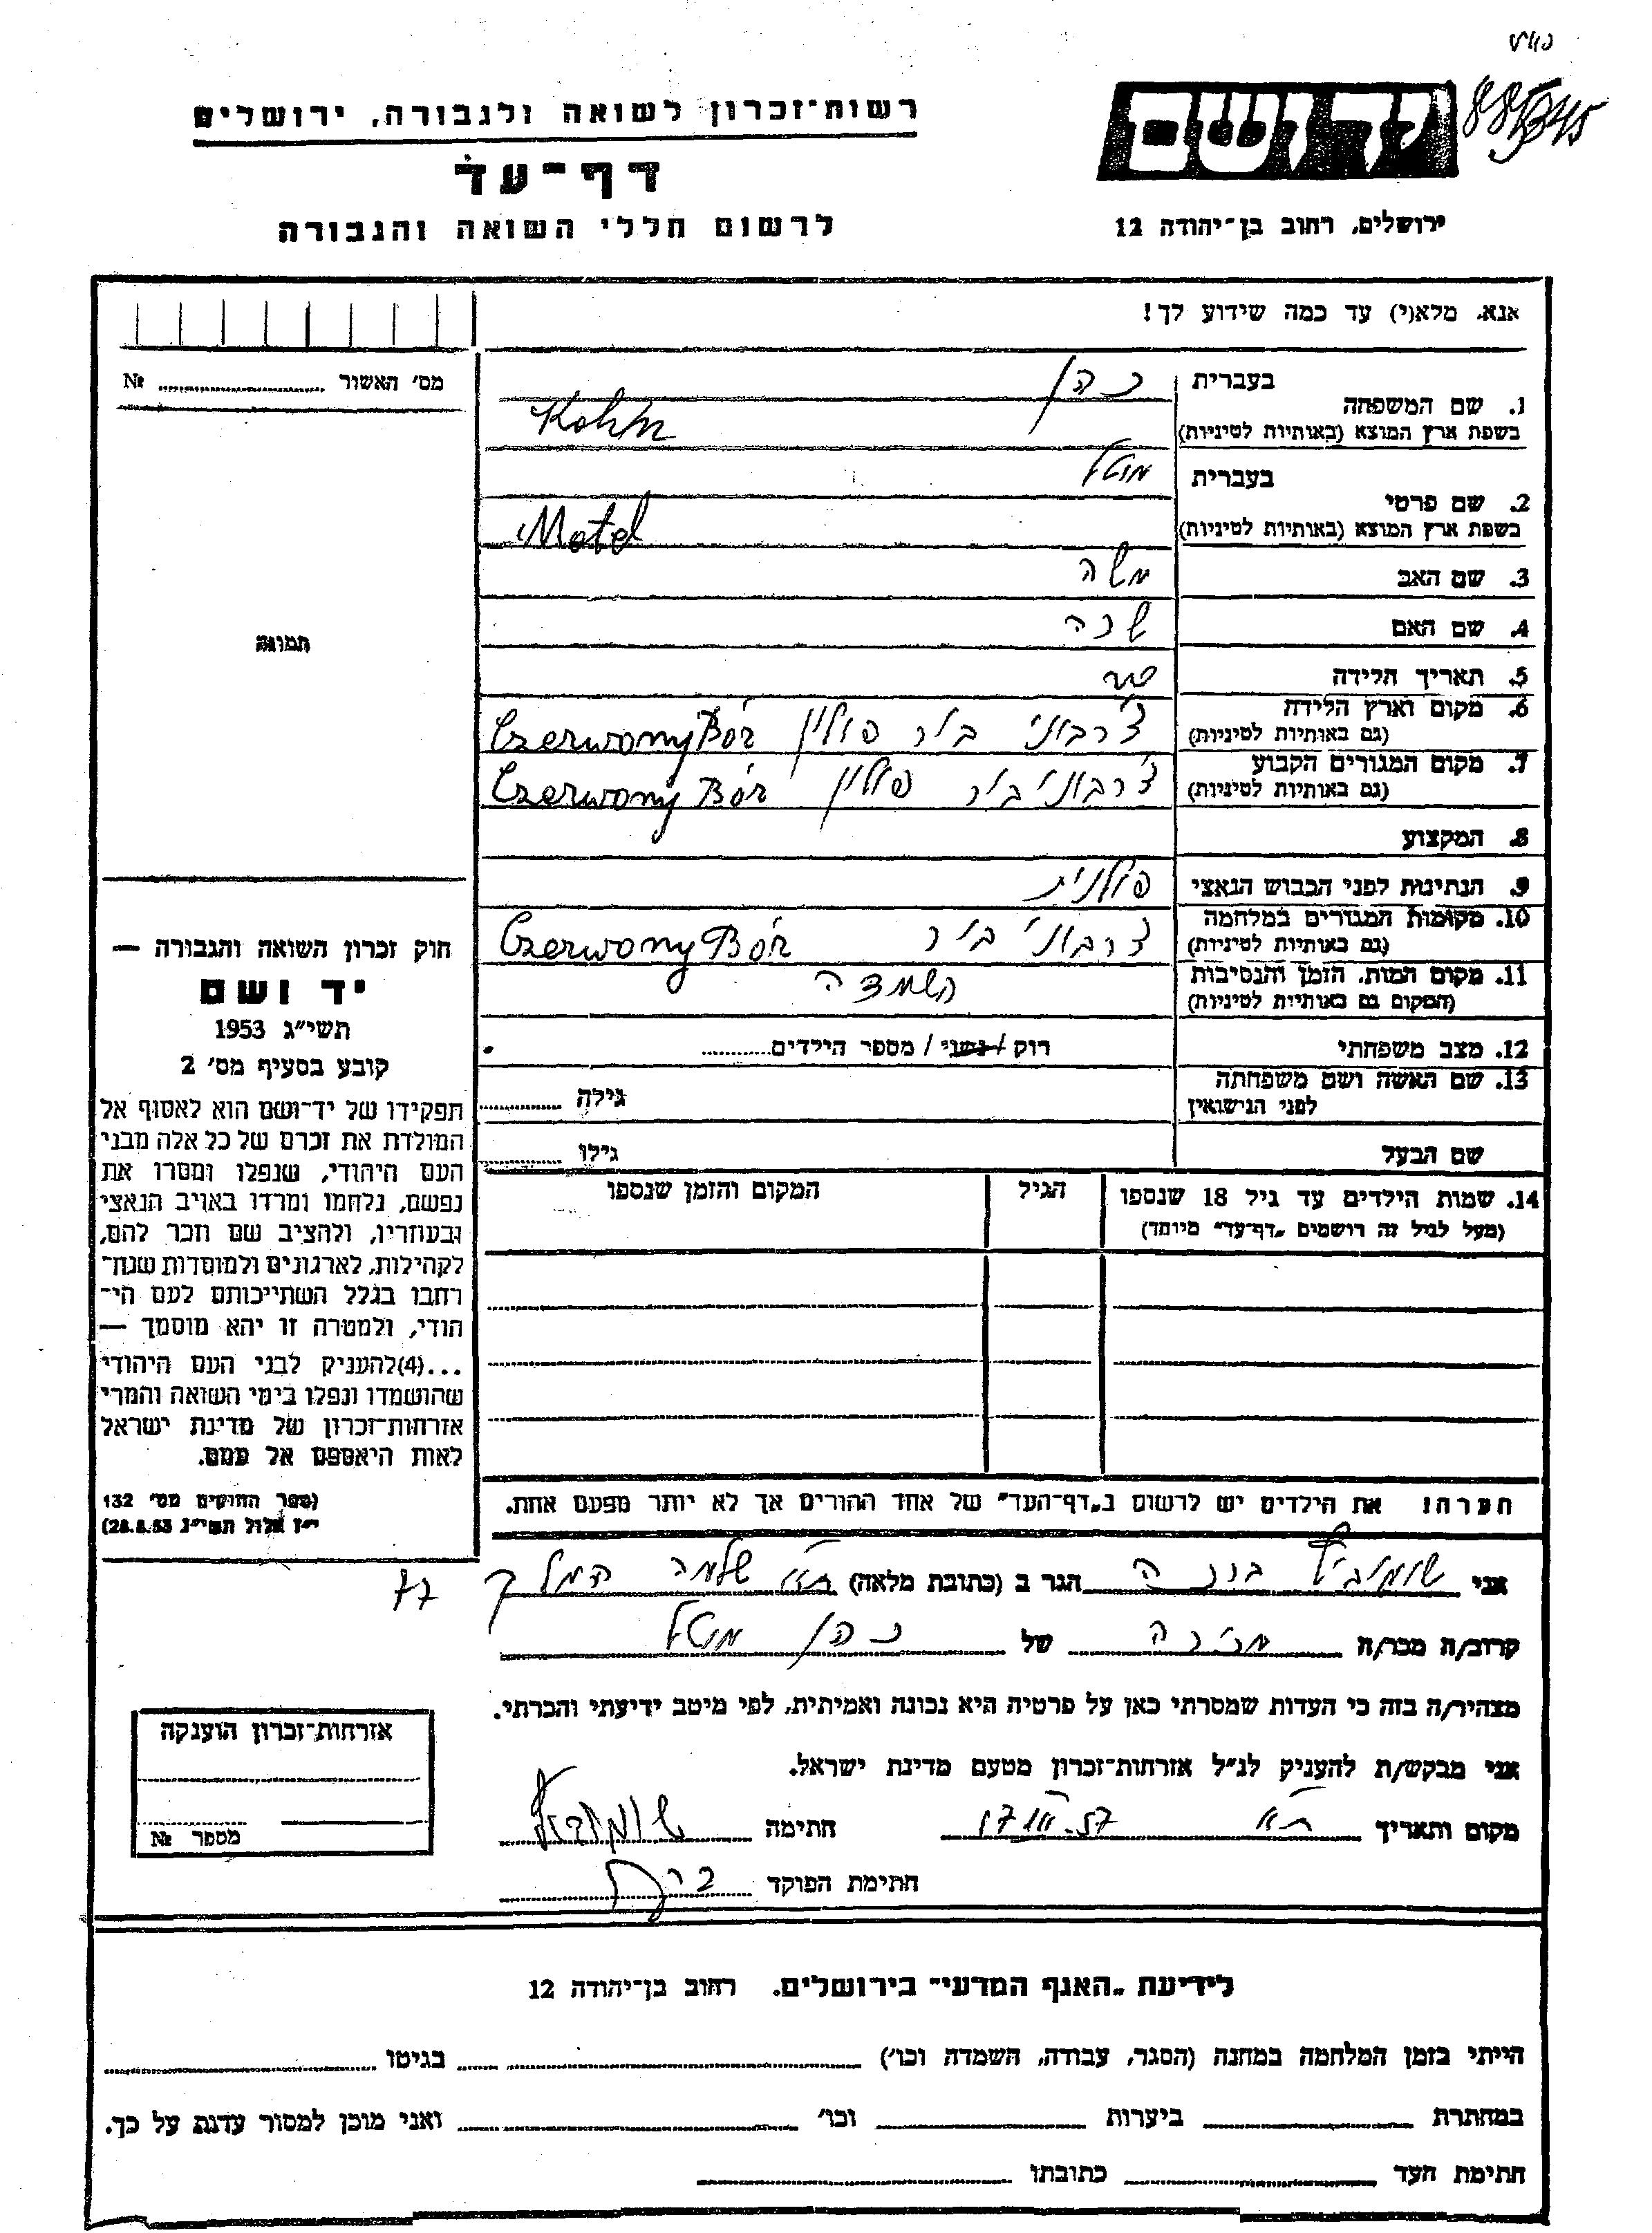 885345
רשות־זכרון לשואה ולגבורה, ירושלים
דף־עד
לרשום חללי השואה והגבורה
ידושם
ירושלים, רחוב בן־יהודה 12
אנא, מלא(י) עד כמה שידוע לך!
מס׳ האשור № 
1. שם המשפחה
בעברית כהן
בשפת ארץ המוצא (באותיות לטיניות) Kohn
2. שם פרטי
בעברית מוטל
בשפת ארץ המוצא (באותיות לטיניות) Motel
3. שם האב משה
4. שם האם
5. תאריך הלידה
6. מקום וארץ הלידה (גם באותיות לטיניות) צ׳רבוני בור פולין Czerwony Bór
7. מקום המגורים הקבוע (גם באותיות לטיניות) צ׳רבוני בור פולין Czerwony Bór
8. המקצוע
9. הנתינות לפני הכבוש הנאצי פולנית
10. מקומות המגורים במלחמה (גם באותיות לטיניות) צ׳רבוני בור Czerwony Bór
11. מקום המות, הזמן והנסיבות (המקום גם באותיות לטיניות) השמדה
12. מצב משפחתי רוק / נשוי / מספר הילדים
13. שם האשה ושם משפחתה לפני הנישואין גילה
שם הבעל גילו
14. שמות הילדים עד גיל 18 שנספו
(מעל לגיל זה רושמים „דף־עד״ מיוחד)
הגיל
המקום והזמן שנספו
הערה! את הילדים יש לרשום ב„דף־העד״ של אחד ההורים אך לא יותר מפעם אחת.
תמונה
חוק זכרון השואה והגבורה —
יד ושם
תשי״ג 1953
קובע בסעיף מס׳ 2
תפקידו של יד־ושם הוא לאסוף אל
המולדת את זכרם של כל אלה מבני
העם היהודי, שנפלו ומסרו את
נפשם, נלחמו ומרדו באויב הנאצי
ובעוזריו, ולהציב שם וזכר להם,
לקהילות, לארגונים ולמוסדות שנח־
רחבו בגלל השתייכותם לעם הי־
הודי, ולמטרה זו יהא מוסמך —
...(4)להעניק לבני העם היהודי
שהושמדו ונפלו בימי השואה והמרי
אזרחות־זכרון של מדינת ישראל
לאות היאספם אל עמם.
(ספר החוקים מס׳ 132
י״ז אלול תשי״ג 28.8.53)
אני הגר ב (כתובת מלאה) ת״א שלמה המלך 77
קרוב/ה מכר/ה מכירה של כהן מוטל
מצהיר/ה בזה כי העדות שמסרתי כאן על פרטיה היא נכונה ואמיתית, לפי מיטב ידיעתי והכרתי.
אני מבקש/ת להעניק לנ״ל אזרחות־זכרון מטעם מדינת ישראל.
מקום ותאריך ת״א 17.III.57 חתימה
חתימת הפוקד
אזרחות־זכרון הוענקה
מספר №
לידיעת „האגף המדעי״ בירושלים, רחוב בן־יהודה 12
הייתי בזמן המלחמה במחנה (הסגר, עבודה, השמדה וכו׳) בגיטו
במחתרת ביערות וכו׳ ואני מוכן למסור עדות על כך.
חתימת העד כתובתו